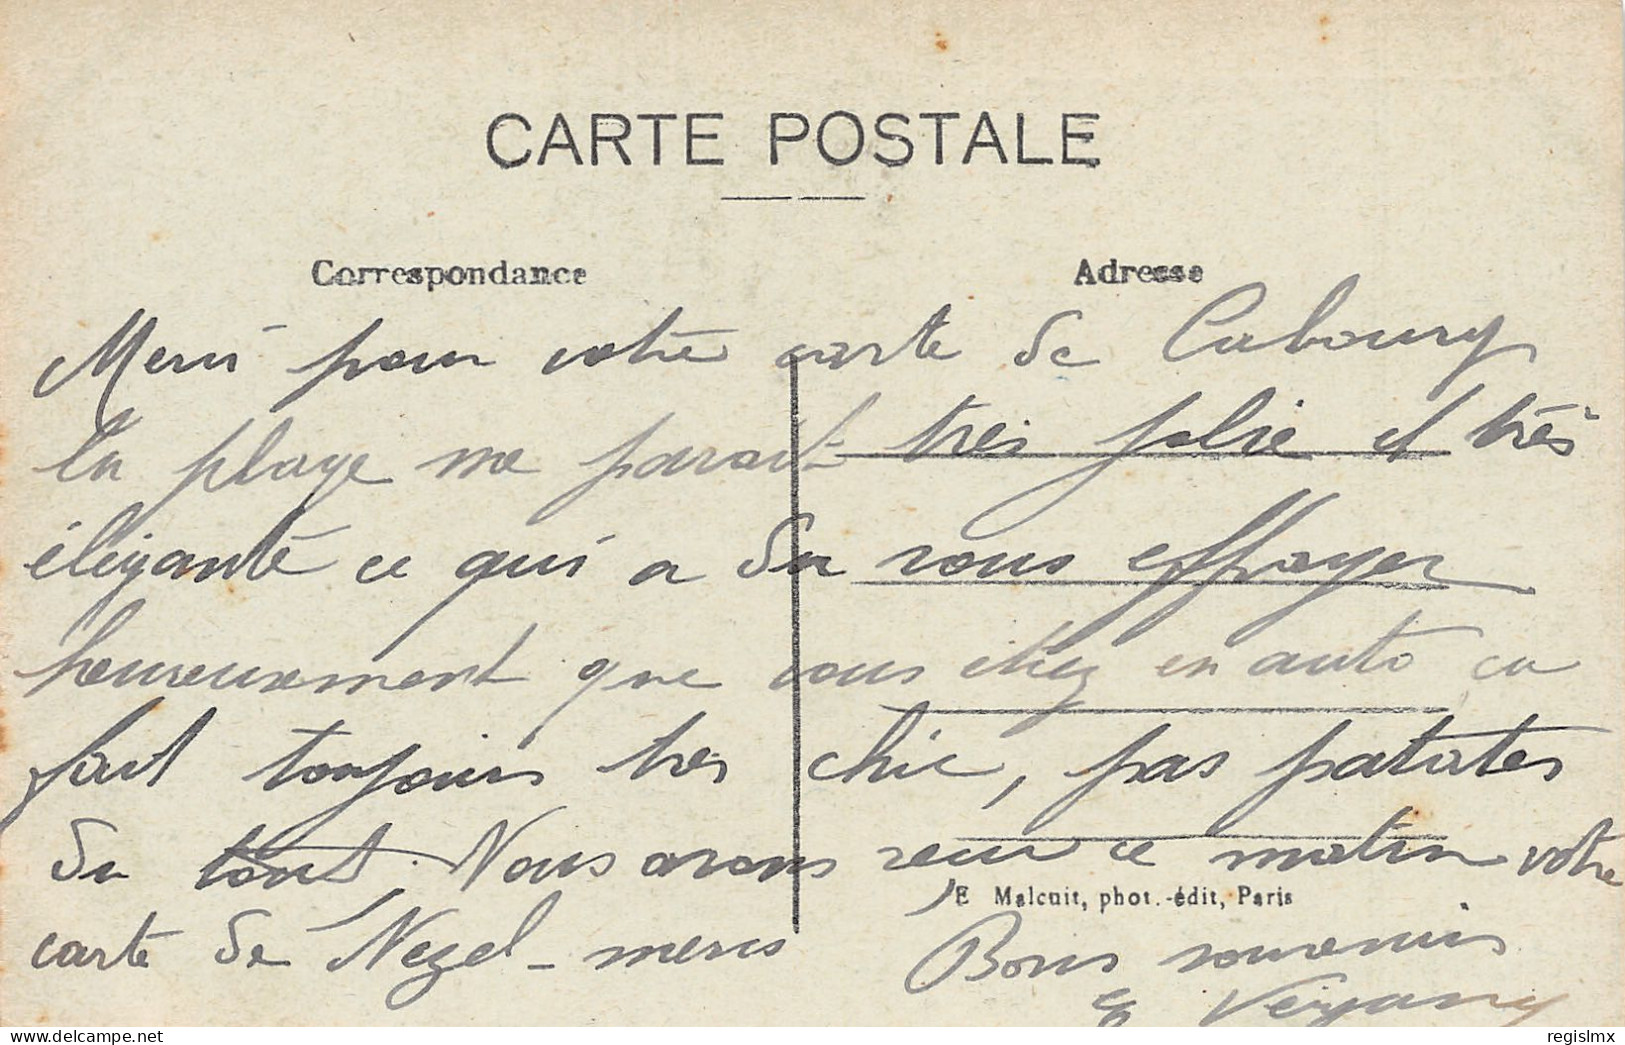 CARTE POSTALE
Correspondance
Adresse
Merci pour votre carte de Cabourg
la plage me parait très jolie et très
élégante ce qui a du vous effrayer
heureusement que vous étiez en auto ça
fait toujours très chic, pas patates
du tout. Nous avons reçu ce matin votre
carte de Nezel - mercis
E Malcuit, phot.-édit, Paris
Bons souvenirs